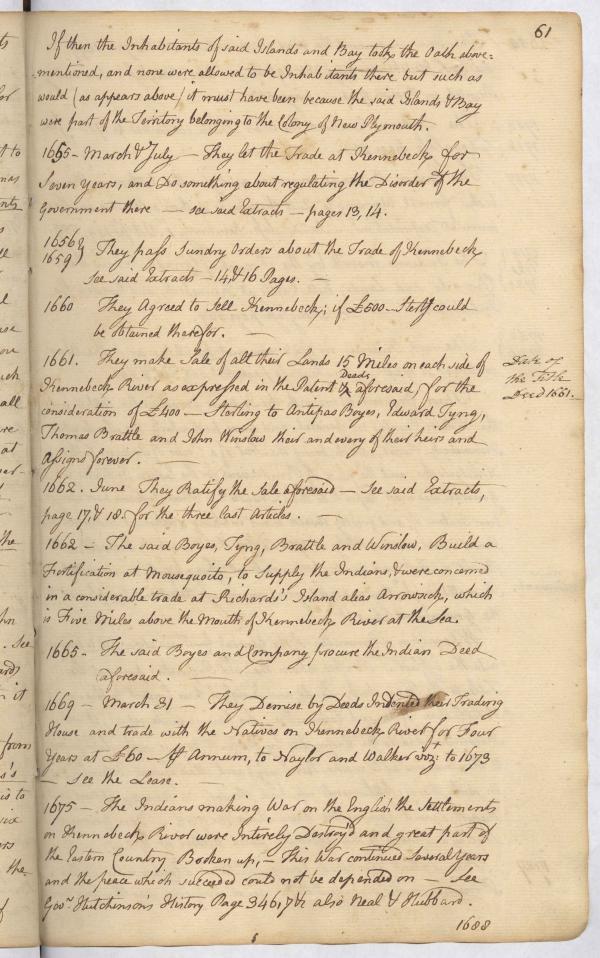 61
If then the Inhabitants of said Islands and Bay took the Oath above=
=mentioned, and none were allowed to be Inhabitants there but such as
would (as appears above) it must have been because the said Islands & Bay
were part of the Territory belonging to the Colony of New Plymouth.
1655 - March & July - They let the Trade at Kennebeck for
Seven Years, and Do something about regulating the Disorder of the
Government there — see said Extracts - pages 13, 14.
1656 &
1659 } They pass Sundry Orders about the Trade of Kennebeck
see said Extracts - 14, & 16 Pages. —
1660 They Agreed to Sell Kennebeck; if £500 - Sterlg could
be obtained therefor. —
1661. They make Sale of all their Lands 15 Miles on each side of
Kennebeck River as expressed in the Patent & Deeds aforesaid, for the
consideration of £400 - Starling to Antipas Boyes, Edward Tyng,
Thomas Brattle and John Winslow their and every of their heirs and
Assigns forever. —
Date of
the Title
Deed 1661.
1662. June They Ratify the Sale aforesaid — See said Extracts,
page 17, & 18. for the three last Articles. —
1662 - The said Boyes, Tyng, Brattle and Winslow, Build a
Fortification at Mousequoito, to Supply the Indians, & were concerned
in a considerable trade at Richards's Island aleas Arrowsick, which
is Five Miles above the Mouth of Kennebeck River at the Sea.
1665 - The said Boyes and Company procure the Indian Deed
aforesaid. —
1669 - March 31 - They Demise by Deeds Indented their Trading
House and trade with the Natives on Kennebeck River for Four
Years at £60 - P Annum, to Naylor and Walker vizt. to 1673
- See the Lease. —
1675 - The Indians making War on the English the Settlements
on Kennebeck River were Intirely Destroy'd and great part of
the Eastern Country Broken up, - This War continued Several Years
and the peace which succeeded could not be depended on — See
Govr. Hutchinson's History Page 346, 7 &c also Neal & Hubbard.
1688